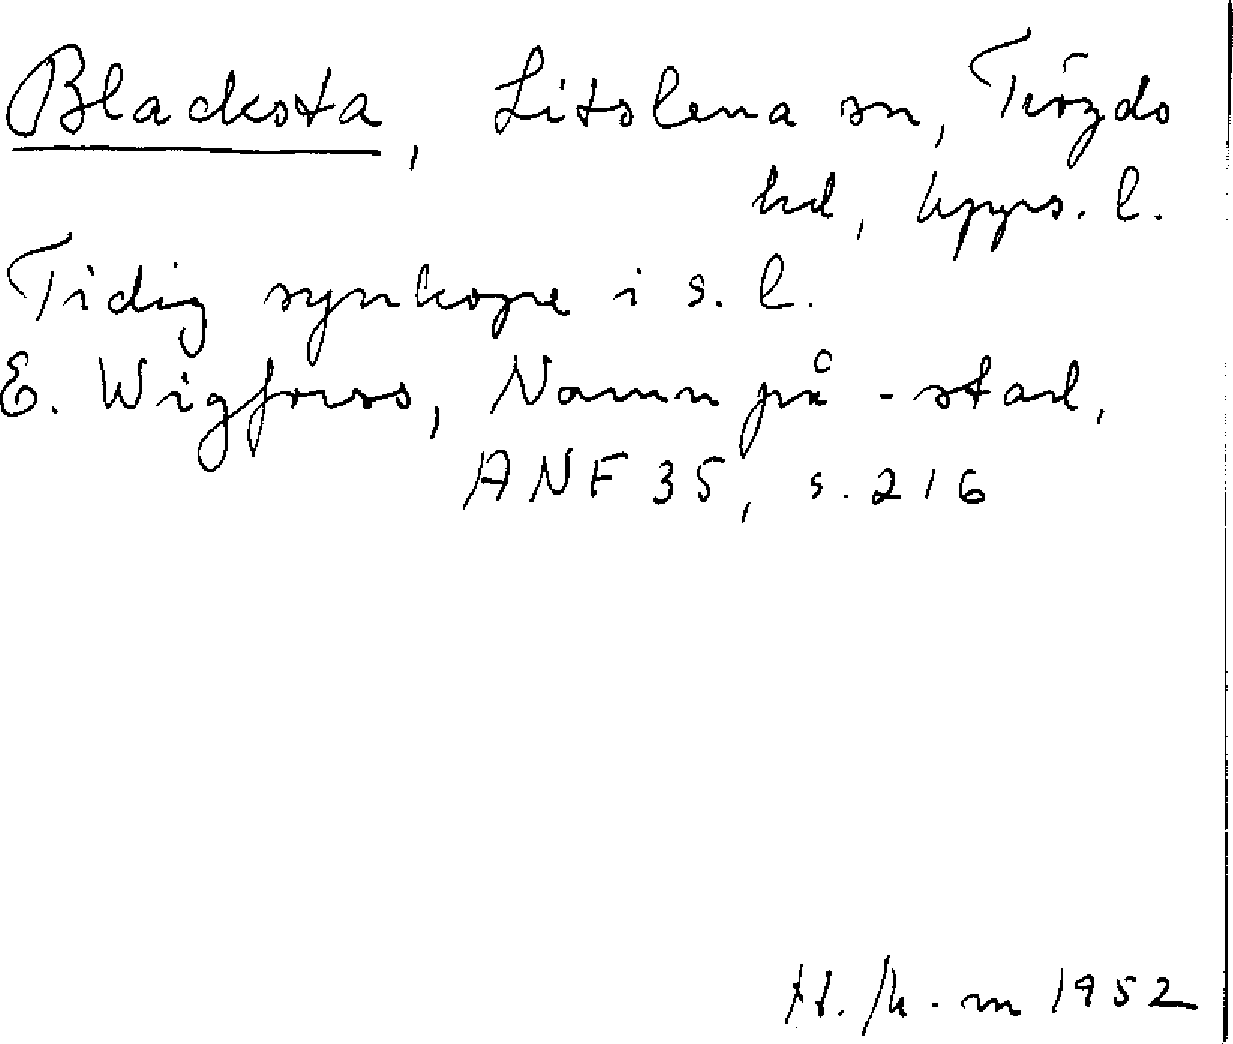 Blacksta, Litslena sn, Trögds
hd, Upps. l.
Tidig synkope i s. l.
E. Wigforss, Namn på -stad,
ANF 35, s. 216
1952